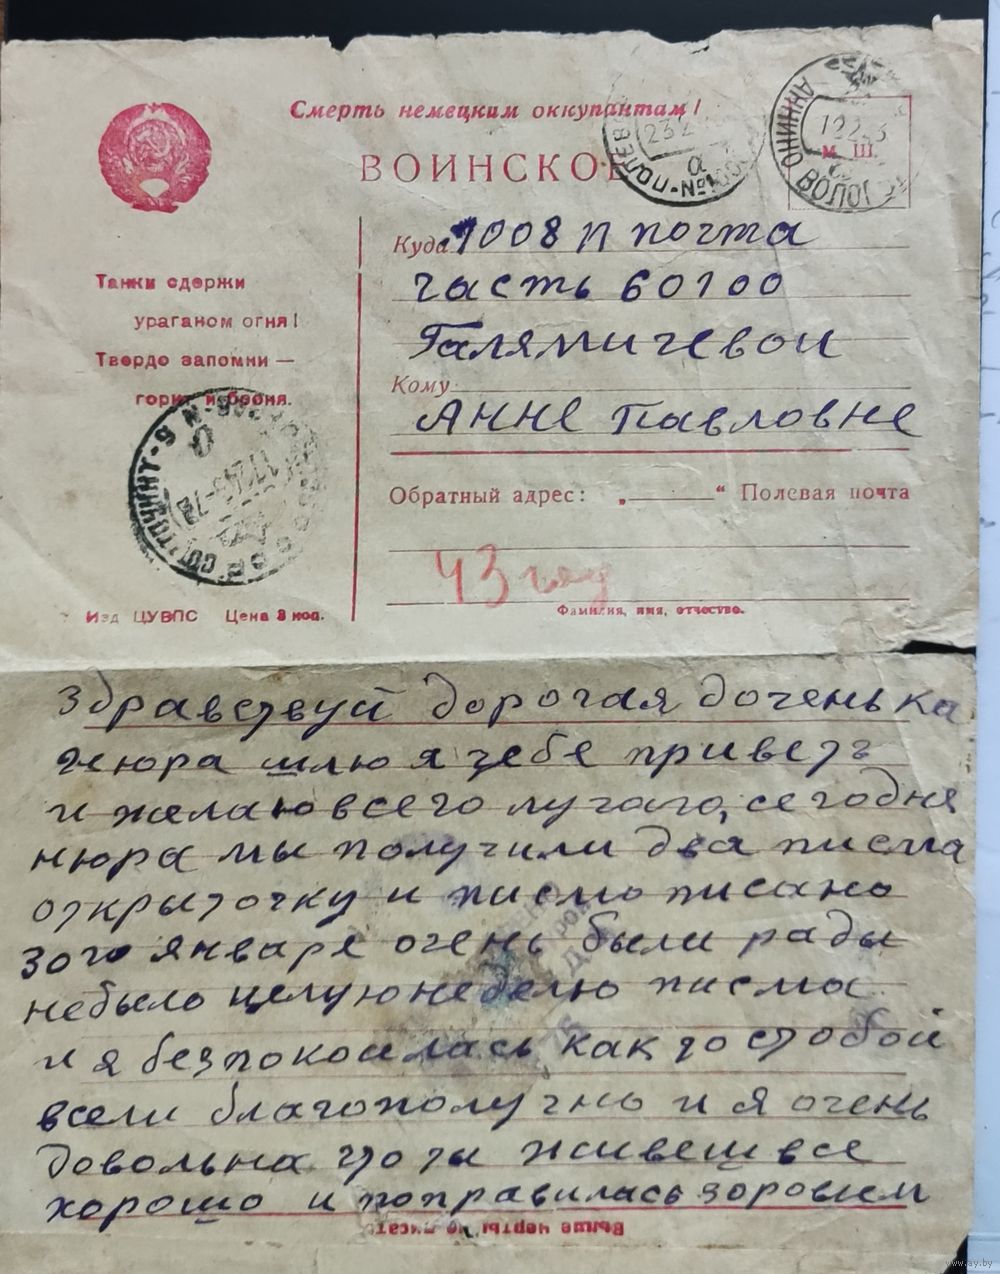 Смерть немецким оккупантам!
ВОИНСКОЕ
м. ш.
АННИНО ВОЛОГ
Куда 1008 п почта
часть 60100
Галямичевои
Кому
Анне Павловне
Обратный адрес: „ “ Полевая почта
43 год
Фамилия, имя, отчество.
Танки сдержи
ураганом огня!
Твердо запомни —
горит и броня.
Изд ЦУВПС Цена 3 коп.
Здравствуй дорогая доченька
Нюра шлю я тебе приветъ
и желаю всего лучаго, сегодня
нюра мы получили два писма
открыточку и писмо писано
30го января очень были рады
небыло целую неделю писма
и я безпокоилась как то стобой
всели благополучно и я очень
довольна что ты живеш все
хорошо и поправилась зоровием
Выше черты не писать
www.ay.by